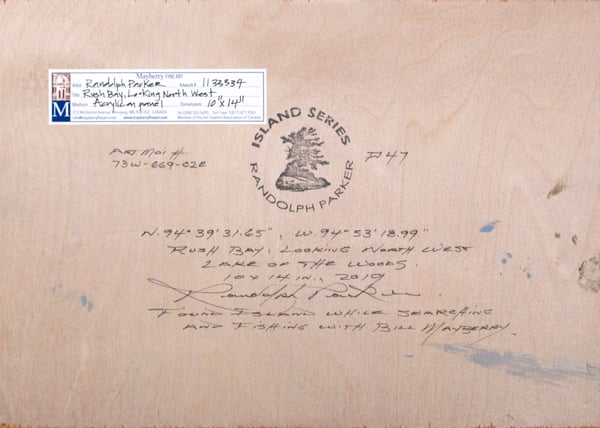 Mayberry FINE ART
Artist Randolph Parker Artwork # 1133334
Title Rush Bay, Looking North West
Medium Acrylic on panel Dimensions 10"x14"
212 McDermot Avenue, Winnipeg, MB, CANADA
info@mayberryfineart.com www.mayberryfineart.com Member of the Art Dealers Association of Canada
M
ISLAND SERIES
RANDOLPH PARKER
ART MOI #
73W-669-02E
# 47
N. 94° 39' 31.65", W. 94° 53' 18.99"
RUSH BAY, LOOKING NORTH WEST
LAKE OF THE WOODS.
10 x 14 in., 2019
Randolph Parker.
FOUND ISLAND WHILE SEARCHING
AND FISHING WITH BILL MAYBERRY.